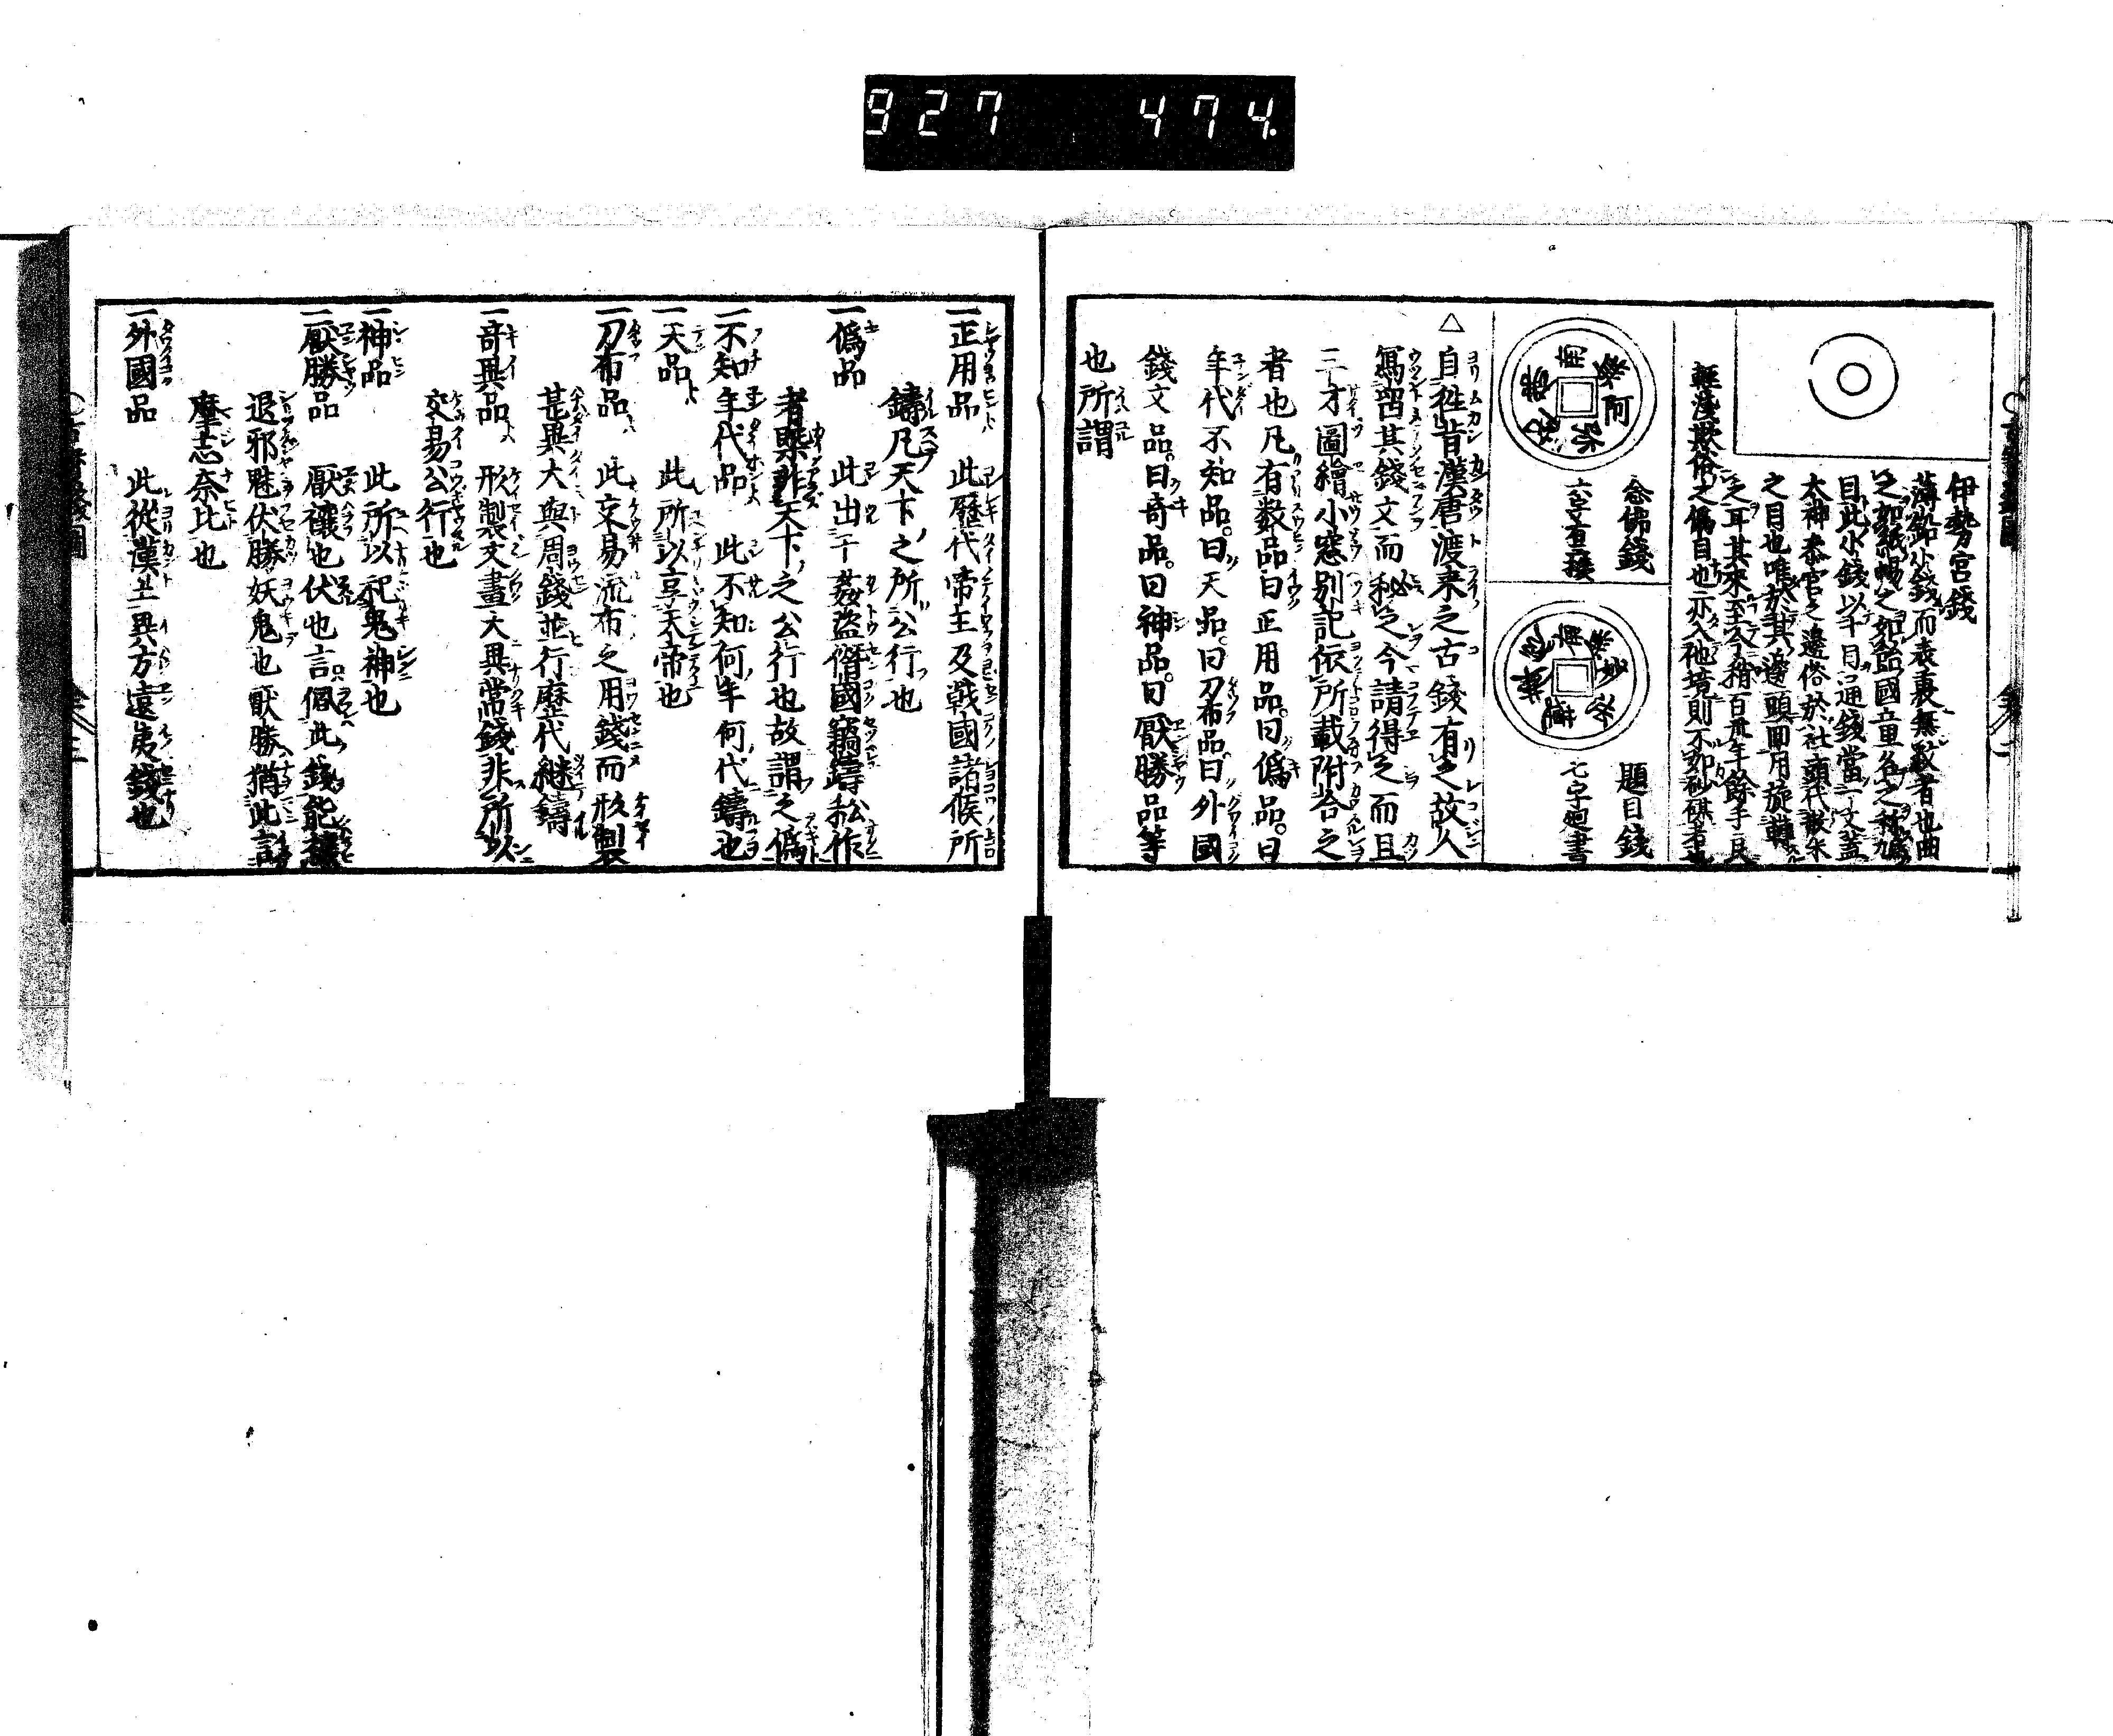 927 474.
伊勢宮錢
薄鉛小錢而表裏無紋者也曲
目此小錢以半目通錢當一文蓋
太神泰宮之邊俗於社頭代散米
之目也唯於其邊頭即用旋轉
之耳其來至今稽百年餘乎
輕淺欺俗之偽目也亦入他境則不如砂礫者也
念佛錢
南無阿弥
題目錢
七字廻書
南無妙法
△
自往昔漢唐渡來之古錢有之故人
寫習其錢文而秘之今請得之而且
三才圖繪小窓別記依所載附合之
者也凡有数品曰正用品。曰偽品。曰
年代不知品。曰天品。曰刀布品。曰外國
錢文品。曰奇品。曰神品。曰厭勝品等
也所謂
一正用品 此歷代帝王及戰國諸候所
鑄凡天下之所公行也
一偽品 此出于姦盗僭國竊鑄私作
者槩非天下之公行也故謂之偽
一不知年代品 此不知何年何代鑄也
一天品 此所以享天帝也
一刀布品 此交易流布之用錢而形製
甚異大與周錢並行歷代継鑄
一奇異品 形製文畫大異常錢非所以
交易公行也
一神品 此所以祀鬼神也
一厭勝品 厭禳也伏也言佩此錢能禳
退邪魅伏勝妖鬼也厭勝猶此言
摩志奈比也
一外國品 此從漢土異方遠夷錢也